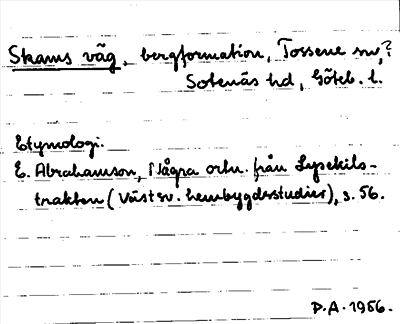 Skams väg, bergformation, Tossene sn,?
Sotenäs hd, Göteb. l.
Etymologi.
E. Abrahamson, Några ortn. från Lysekils-
trakten (Västsv. hembygdsstudier), s. 56.
P.A. 1956.